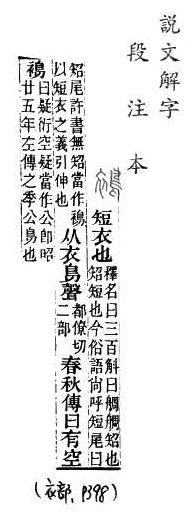 說文解字
段注本
短衣也
釋名曰三百斛曰鯛鯛貂也
貂短也今俗語尚呼短尾曰
貂尾許書無貂當作裯
以短衣之義引伸也
从衣鳥聲
都僚切
二部
春秋傳曰有空
褭
曰疑衍空疑當作公卽昭
廿五年左傳之季公鳥也
(衣部, P398)